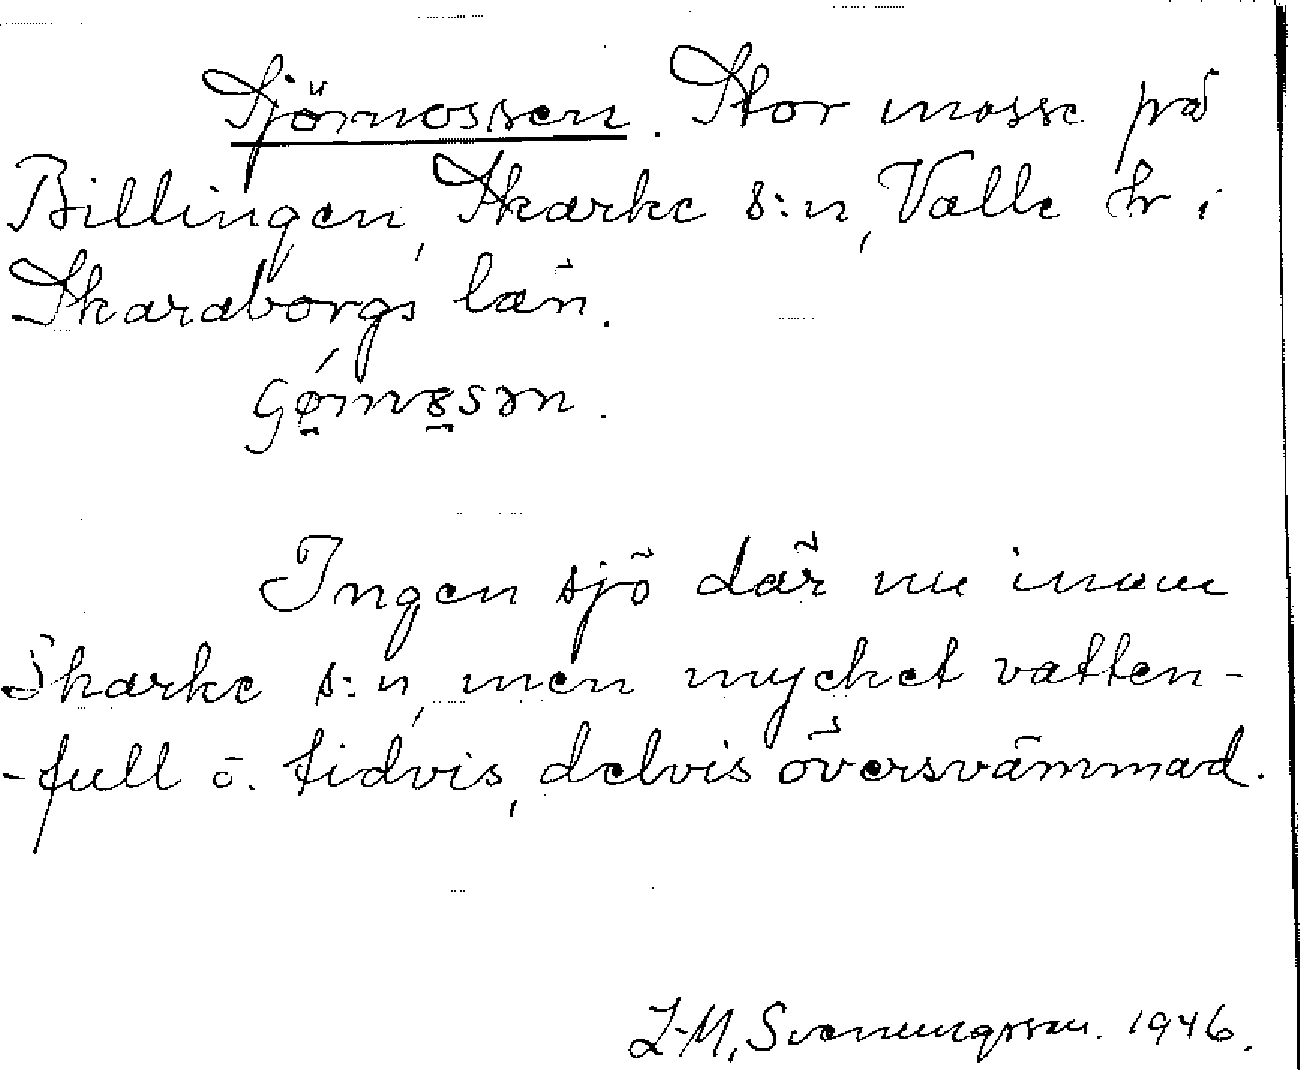 Sjömossen. Stor mosse på
Billingen, Skarke s:n, Valle hr i
Skaraborgs län.

Ingen sjö där nu inom
Skarke s:n, men mycket vatten-
-full o. tidvis, delvis översvämmad.
1946.